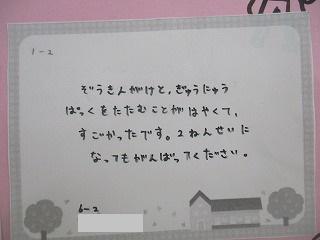 1-2
ぞうきんがけと、ぎゅうにゅう
ぱっくをたたむことがはやくて、
すごかったです。2ねんせいに
なってもがんばってください。
6-2